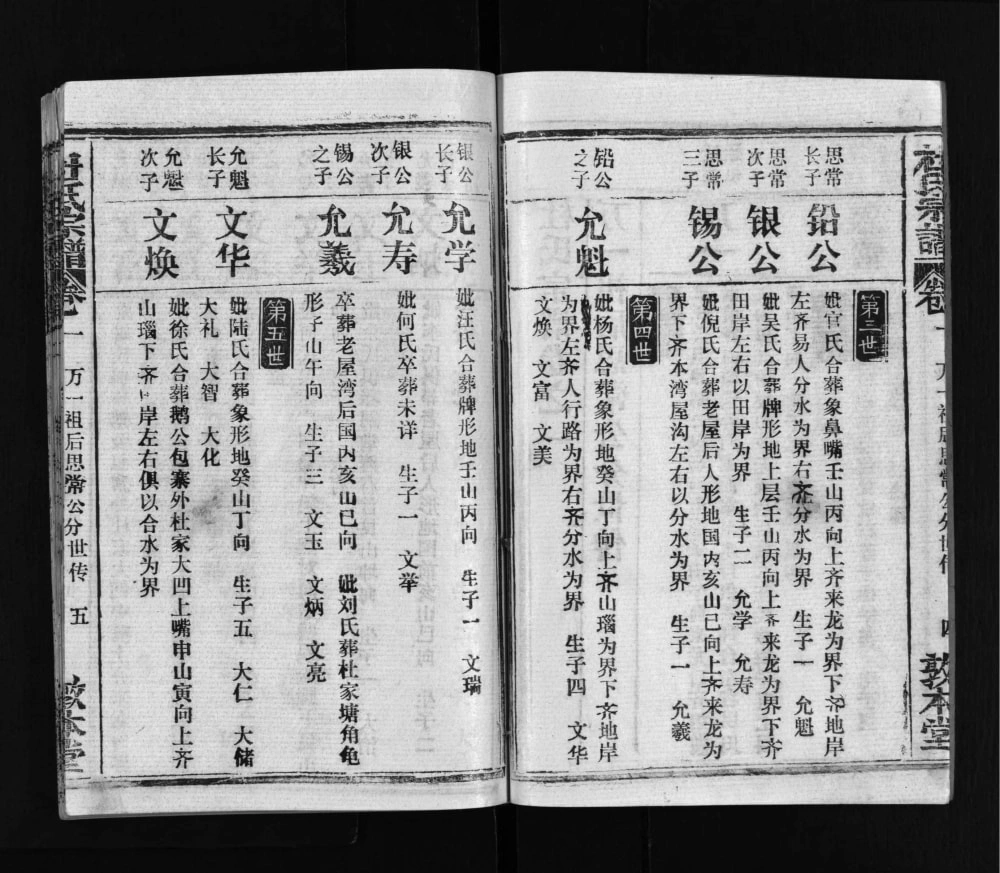 杜氏宗谱
卷一
万一祖后思常公分世传
四
敦本堂
第三世
思常
长子
铅公
妣官氏合葬象鼻嘴壬山丙向上齐来龙为界下齐地岸
左齐易人分水为界右齐分水为界 生子一 允魁
思常
次子
银公
妣吴氏合葬牌形地上层壬山丙向上齐来龙为界下齐
田岸左右以田岸为界 生子二 允学 允寿
思常
三子
锡公
妣倪氏合葬老屋后人形地国内亥山巳向上齐来龙为
界下齐本湾屋沟左右以分水为界 生子一 允羲
第四世
铅公
之子
允魁
妣杨氏合葬象形地癸山丁向上齐山瑙为界下齐地岸
为界左齐人行路为界右齐分水为界 生子四 文华
文焕 文富 文美
银公
长子
允学
妣汪氏合葬牌形地壬山丙向 生子一 文瑞
银公
次子
允寿
妣何氏卒葬未详 生子一 文举
锡公
之子
允羲
卒葬老屋湾后国内亥山巳向 妣刘氏葬杜家塘角龟
形子山午向 生子三 文玉 文炳 文亮
第五世
允魁
长子
文华
妣陆氏合葬象形地癸山丁向 生子五 大仁 大储
大礼 大智 大化
允魁
次子
文焕
妣徐氏合葬鹅公包寨外杜家大凹上嘴申山寅向上齐
山瑙下齐岸左右俱以合水为界
杜氏宗谱
卷一
万一祖后思常公分世传
五
敦本堂